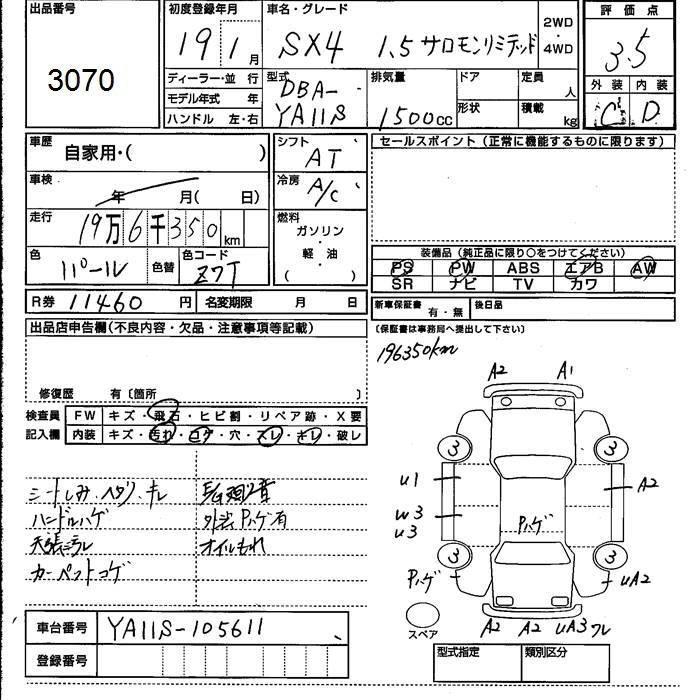 出品番号
3070
初度登録年月
19 1月
車名・グレード
SX4 1.5 サロモンリミテッド
2WD
・
4WD
評価点
3.5
外装 内装
C D
ディーラー・並行
モデル年式 年
ハンドル 左・右
型式
DBA-
YA11S
排気量
1500cc
ドア
形状
定員 人
積載 kg
車歴
自家用・( )
車検
年 月( 日)
走行
19万6千350km
色
パール
色替
色コード
Z7T
シフト
AT
冷房
A/C
燃料
ガソリン・軽・油
( )
セールスポイント (正常に機能するものに限ります)
装備品 (純正品に限り○をつけてください)
PS PW ABS エアB AW
SR ナビ TV カワ
R券 11460円 名変期限 月 日
新車保証書 有・無 後日品
(保証書は事務局へ提出して下さい)
出品店申告欄(不良内容・欠品・注意事項等記載)
196350km
修復歴 有〔箇所 〕
検査員
記入欄
FW キズ・飛石・ヒビ割・リペア跡・X要
内装 キズ・汚れ・コゲ・穴・スレ・キレ・破レ
シートしみ・ヘタリ・キレ
ハンドルハゲ
天張ミラレ
カーペットコゲ
外装Pハゲ有
オイルもれ
A2 A1
3 3
U1
A2
W3
U3
Pハゲ
3 3
Pハゲ
UA2
スペア
A2 A2 UA3 ワレ
車台番号 YA11S-105611
登録番号
型式指定 類別区分